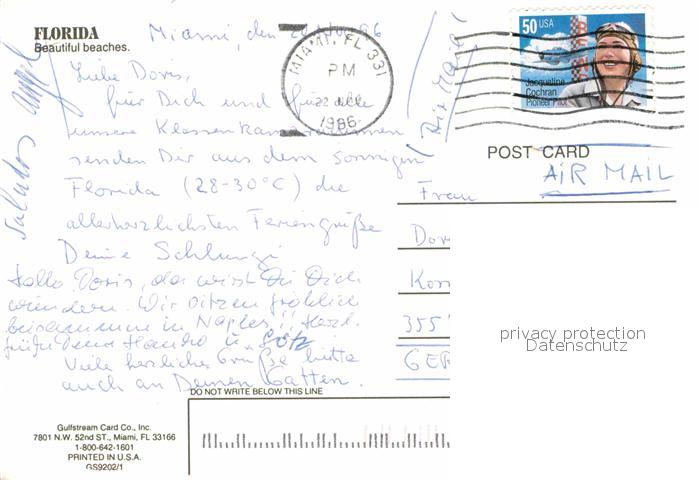 FLORIDA
Beautiful beaches.
Miami, den
Liebe Doris,
für Dich und für alle
unsere
senden Dir aus dem sonnigen
Florida (28-30°C) die
allerherzlichsten Feriengrüße
Deine
Hallo Doris, da wirst Du Dich
wundern. Wir sitzen fröhlich
beisammen in Naples!! Herzl.
Grüße Deine
Viele herzliche Grüße bitte
auch an Deinen Gatten.
Saludos
MIAMI, FL 331
PM
1996
50 USA
Jacqueline
Cochran
Pioneer Pilot
Air Mail
POST CARD
AIR MAIL
Frau
Dor
355
GER
privacy protection
Datenschutz
DO NOT WRITE BELOW THIS LINE
Gulfstream Card Co., Inc.
7801 N.W. 52nd ST., Miami, FL 33166
1-800-642-1601
PRINTED IN U.S.A.
GS9202/1